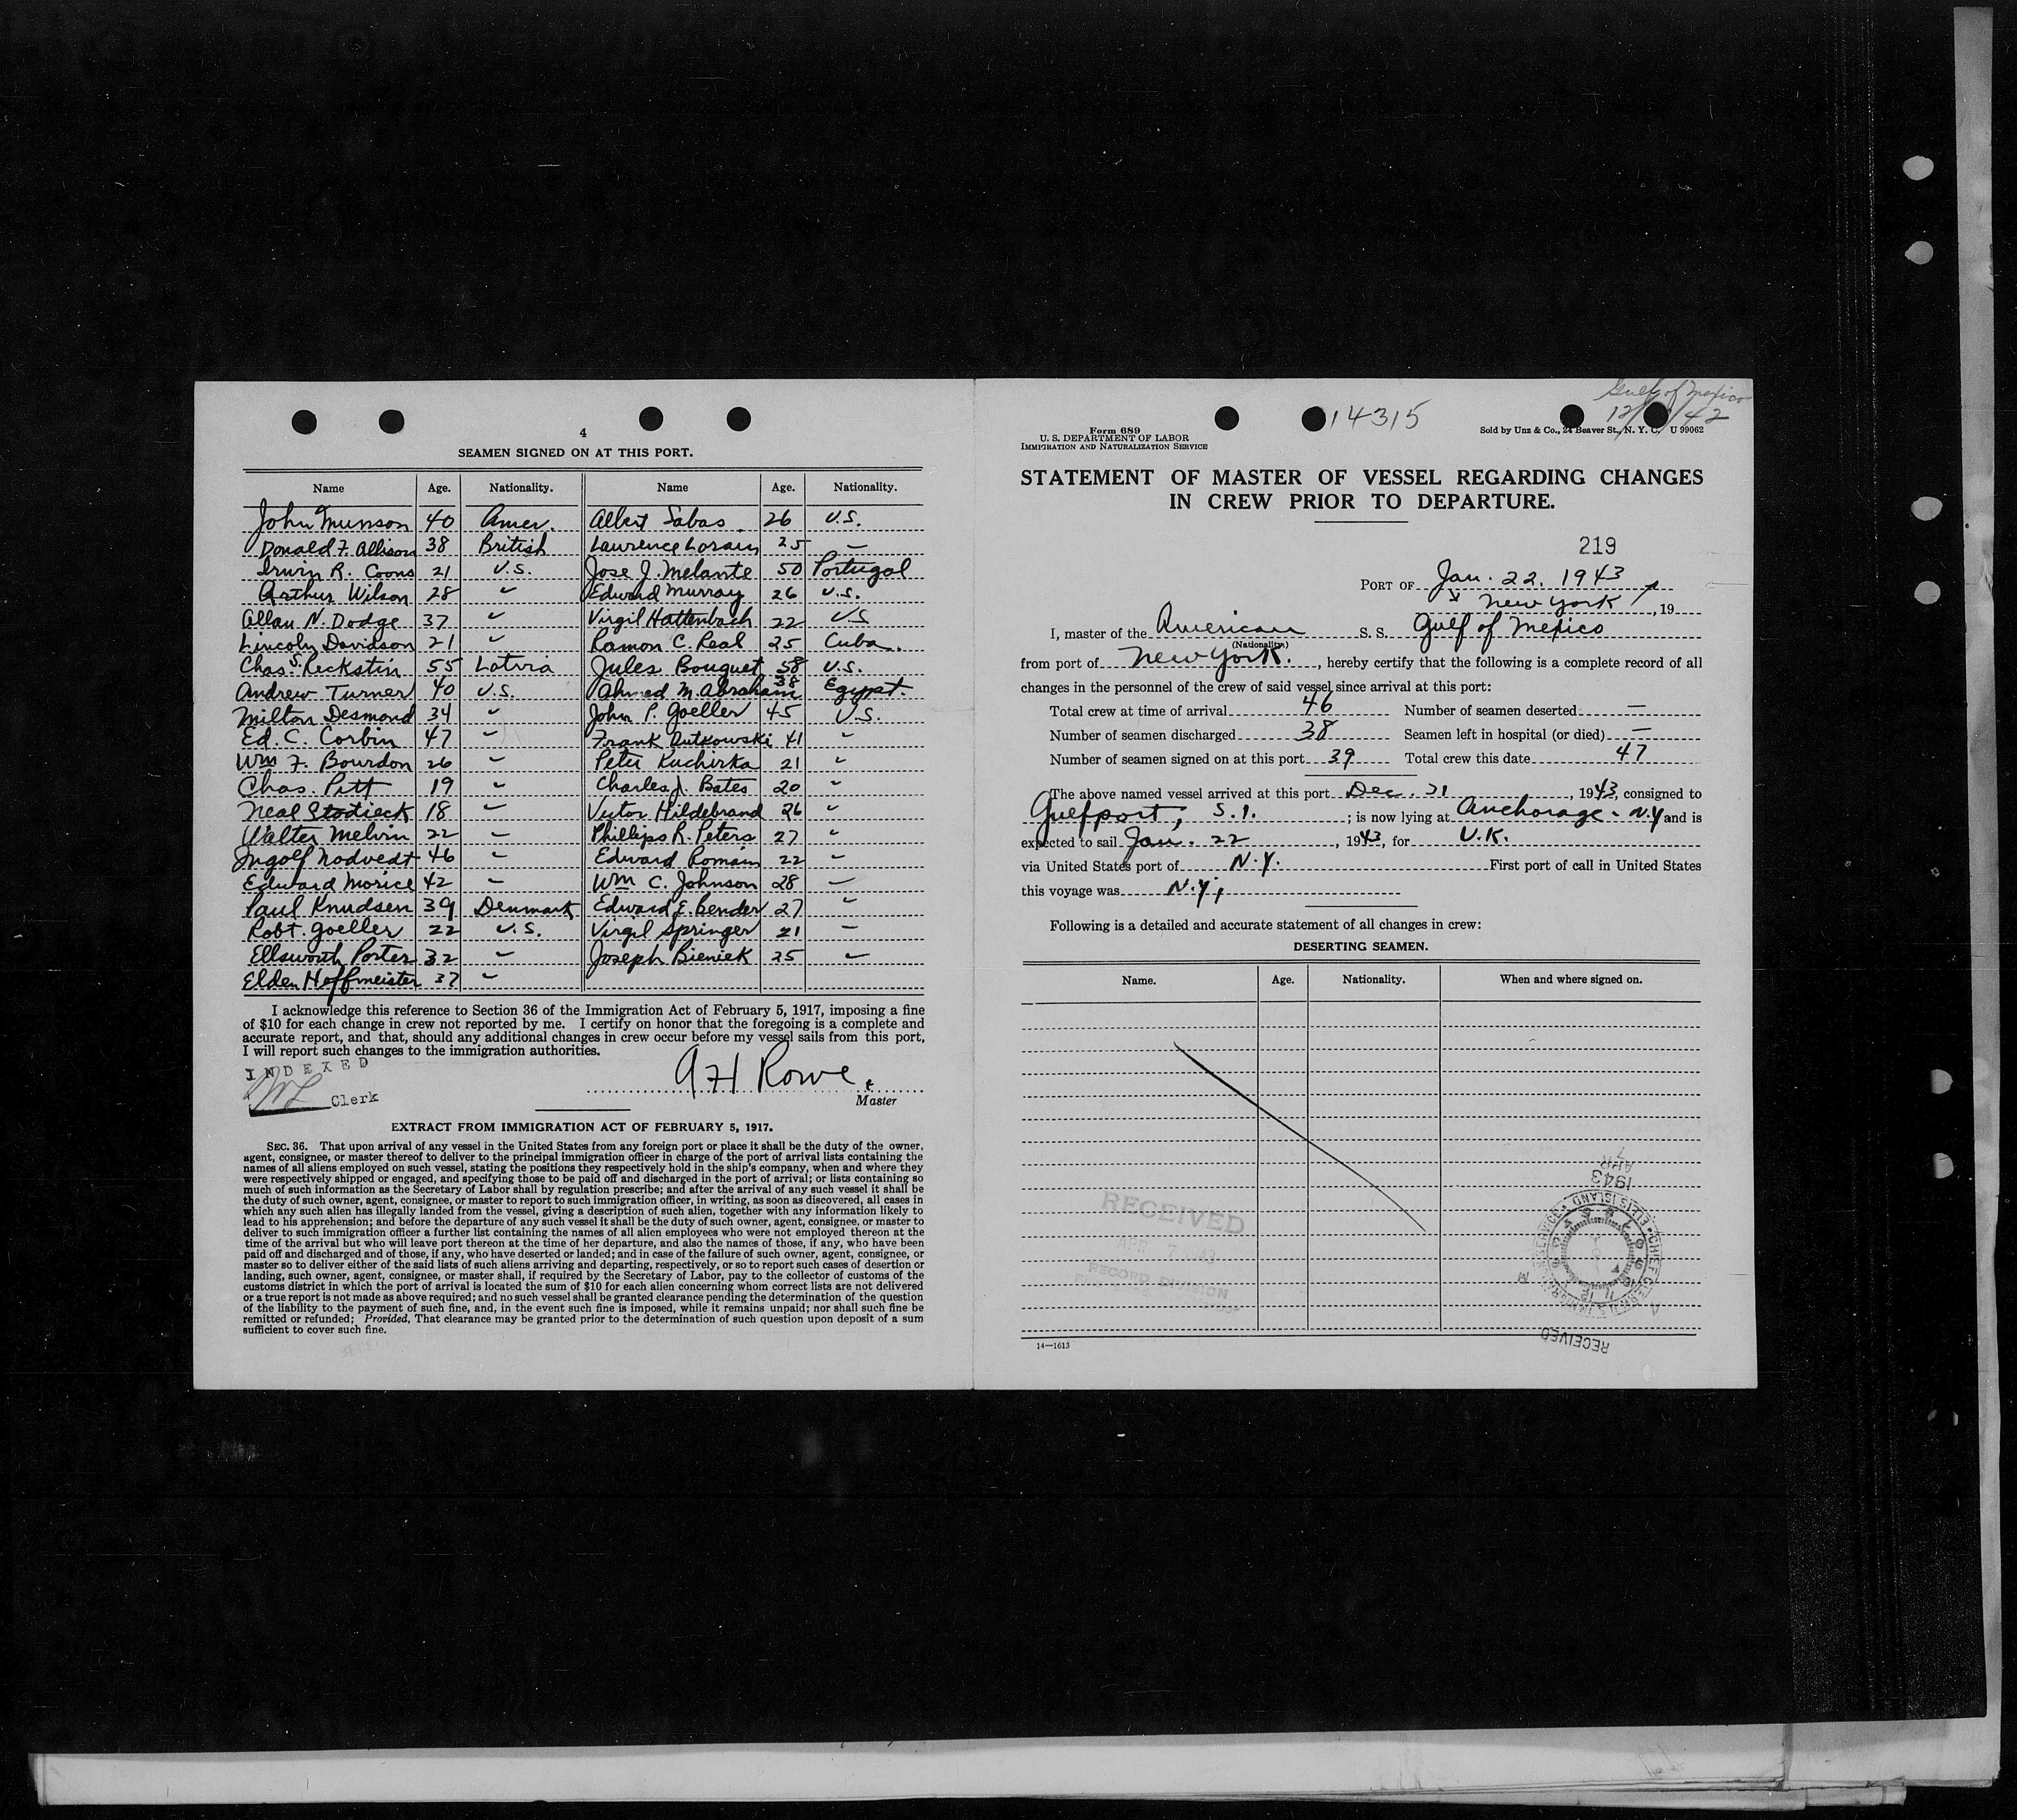 4
SEAMEN SIGNED ON AT THIS PORT.
Name Age. Nationality. Name Age. Nationality.
John Munson 40 Amer. Albert Sabas 26 U.S.
Donald F. Allison 38 British Laurence Lorain 25 —
Irwin R. Coons 21 U.S. Jose J. Melante 50 Portugal
Arthur Wilson 28 " Edward Murray 26 U.S.
Allan N. Dodge 37 " Virgil Hattenbach 22 U.S
Lincoln Davidson 21 " Ramon C. Real 25 Cuba.
Chas. S. Reckstin 55 Latvia Jules Bouquet 58 U.S.
Andrew Turner 40 U.S. Ahmed M. Abraham 38 Egypt.
Milton Desmond 34 " John P. Goeller 45 U.S.
Ed. C. Corbin 47 " Frank Rutkowski 41 "
Wm F. Bourdon 26 " Peter Kuchirka 21 "
Chas. Pitt 19 " Charles J. Bates 20 "
Neal Stodieck 18 " Victor Hildebrand 26 "
Walter Melvin 22 — Phillips R. Peters 27 "
Ingolf Nodvedt 46 " Edward Romain 22 —
Edward Morice 42 " Wm C. Johnson 28 —
Paul Knudsen 39 Denmark Edward E. Bender 27 "
Robt. Goeller 22 U.S. Virgil Springer 21 —
Ellsworth Porter 32 " Joseph Bieniek 25 —
Elden Hoffmeister 37 "
I acknowledge this reference to Section 36 of the Immigration Act of February 5, 1917, imposing a fine
of $10 for each change in crew not reported by me. I certify on honor that the foregoing is a complete and
accurate report, and that, should any additional changes in crew occur before my vessel sails from this port,
I will report such changes to the immigration authorities.
INDEXED
A H Rowe
Clerk
Master
EXTRACT FROM IMMIGRATION ACT OF FEBRUARY 5, 1917.
SEC. 36. That upon arrival of any vessel in the United States from any foreign port or place it shall be the duty of the owner,
agent, consignee, or master thereof to deliver to the principal immigration officer in charge of the port of arrival lists containing the
names of all aliens employed on such vessel, stating the positions they respectively hold in the ship's company, when and where they
were respectively shipped or engaged, and specifying those to be paid off and discharged in the port of arrival; or lists containing so
much of such information as the Secretary of Labor shall by regulation prescribe; and after the arrival of any such vessel it shall be
the duty of such owner, agent, consignee, or master to report to such immigration officer, in writing, as soon as discovered, all cases in
which any such alien has illegally landed from the vessel, giving a description of such alien, together with any information likely to
lead to his apprehension; and before the departure of any such vessel it shall be the duty of such owner, agent, consignee, or master to
deliver to such immigration officer a further list containing the names of all alien employees who were not employed thereon at the
time of the arrival but who will leave port thereon at the time of her departure, and also the names of those, if any, who have been
paid off and discharged and of those, if any, who have deserted or landed; and in case of the failure of such owner, agent, consignee, or
master so to deliver either of the said lists of such aliens arriving and departing, respectively, or so to report such cases of desertion or
landing, such owner, agent, consignee, or master shall, if required by the Secretary of Labor, pay to the collector of customs of the
customs district in which the port of arrival is located the sum of $10 for each alien concerning whom correct lists are not delivered
or a true report is not made as above required; and no such vessel shall be granted clearance pending the determination of the question
of the liability to the payment of such fine, and, in the event such fine is imposed, while it remains unpaid; nor shall such fine be
remitted or refunded; Provided, That clearance may be granted prior to the determination of such question upon deposit of a sum
sufficient to cover such fine.
Gulf of Mexico
14315
Form 689
U. S. DEPARTMENT OF LABOR
IMMIGRATION AND NATURALIZATION SERVICE
Sold by Unz & Co., 24 Beaver St., N. Y. C. U 99062
STATEMENT OF MASTER OF VESSEL REGARDING CHANGES
IN CREW PRIOR TO DEPARTURE.
219
PORT OF Jan. 22. 1943
New York , 19
I, master of the American S. S. Gulf of Mexico
(Nationality)
from port of New York. , hereby certify that the following is a complete record of all
changes in the personnel of the crew of said vessel since arrival at this port:
Total crew at time of arrival 46 Number of seamen deserted —
Number of seamen discharged 38 Seamen left in hospital (or died) —
Number of seamen signed on at this port 39 Total crew this date 47
The above named vessel arrived at this port Dec. 31 , 1943, consigned to
Gulfport, S.I. ; is now lying at Anchorage - N.Y and is
expected to sail Jan. 22 , 1943, for U.K.
via United States port of N.Y. First port of call in United States
this voyage was N.Y,
Following is a detailed and accurate statement of all changes in crew:
DESERTING SEAMEN.
Name. Age. Nationality. When and where signed on.
RECEIVED
APR 7 1943
RECORD DIVISION
1943
APR
7
RECEIVED
14—1613